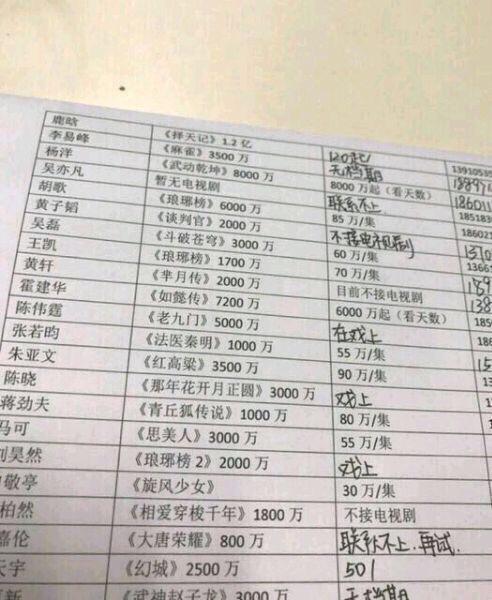 鹿晗 《择天记》1.2 亿 120起/
李易峰 《麻雀》3500 万 无档期
杨洋 《武动乾坤》8000 万 8000 万起（看天数）
吴亦凡 暂无电视剧 联系不上
胡歌 《琅琊榜》6000 万 85 万/集
黄子韬 《谈判官》2000 万 不接电视剧
吴磊 《斗破苍穹》3000 万 60 万/集
王凯 《琅琊榜》1700 万 70 万/集
黄轩 《芈月传》2000 万 目前不接电视剧
霍建华 《如懿传》7200 万 6000 万起（看天数）
陈伟霆 《老九门》5000 万 在戏上
张若昀 《法医秦明》1000 万 55 万/集
朱亚文 《红高粱》3500 万 90 万/集
陈晓 《那年花开月正圆》3000 万 戏上
蒋劲夫 《青丘狐传说》1000 万 80 万/集
马可 《思美人》3000 万 55 万/集
刘昊然 《琅琊榜 2》2000 万 戏上
敬亭 《旋风少女》 30 万/集
柏然 《相爱穿梭千年》1800 万 不接电视剧
嘉伦 《大唐荣耀》800 万 联系不上.再试.
天宇 《幻城》2500 万 50/
新 《武神赵子龙》3000 万 无档期